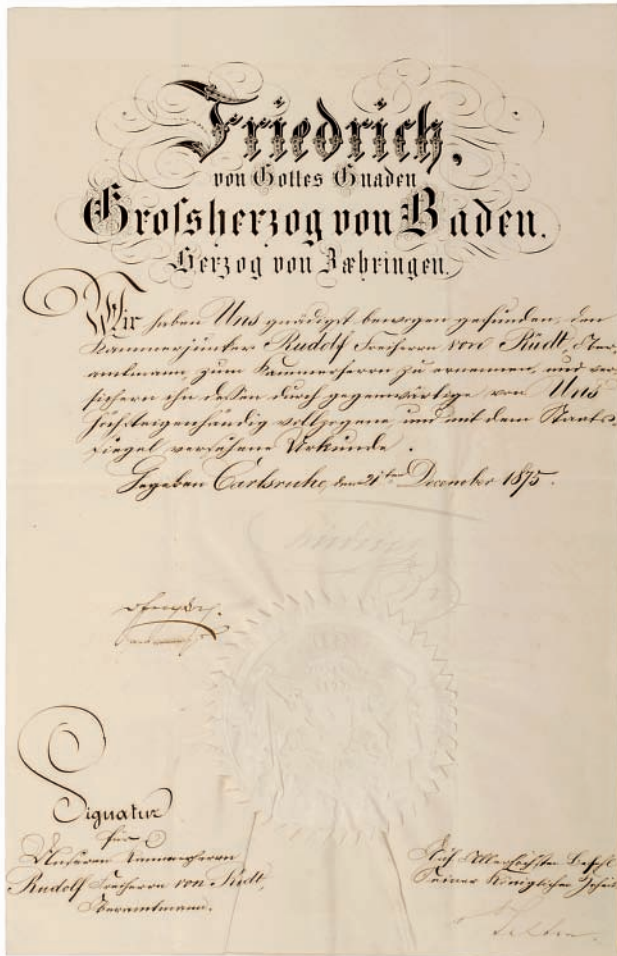 Friedrich,
von Gottes Gnaden
Großherzog von Baden.
Herzog von Zæhringen.
Wir haben Uns gnädigst bewogen gefunden, den
Kammerjunker Rudolf Freiherrn von Rüdt, Ober-
amtmann, zum Kammerherrn zu ernennen, und ver-
sichern ihn dessen durch gegenwärtige von Uns
höchsteigenhändig vollzogene und mit dem Staats-
siegel versehene Urkunde.
Gegeben Carlsruhe, den 21ten December 1875.
Signatur
für
Unseren Kammerherrn
Rudolf Freiherrn von Rüdt,
Oberamtmann.
Auf Allerhöchsten Befehl
Seiner Königlichen Hoheit